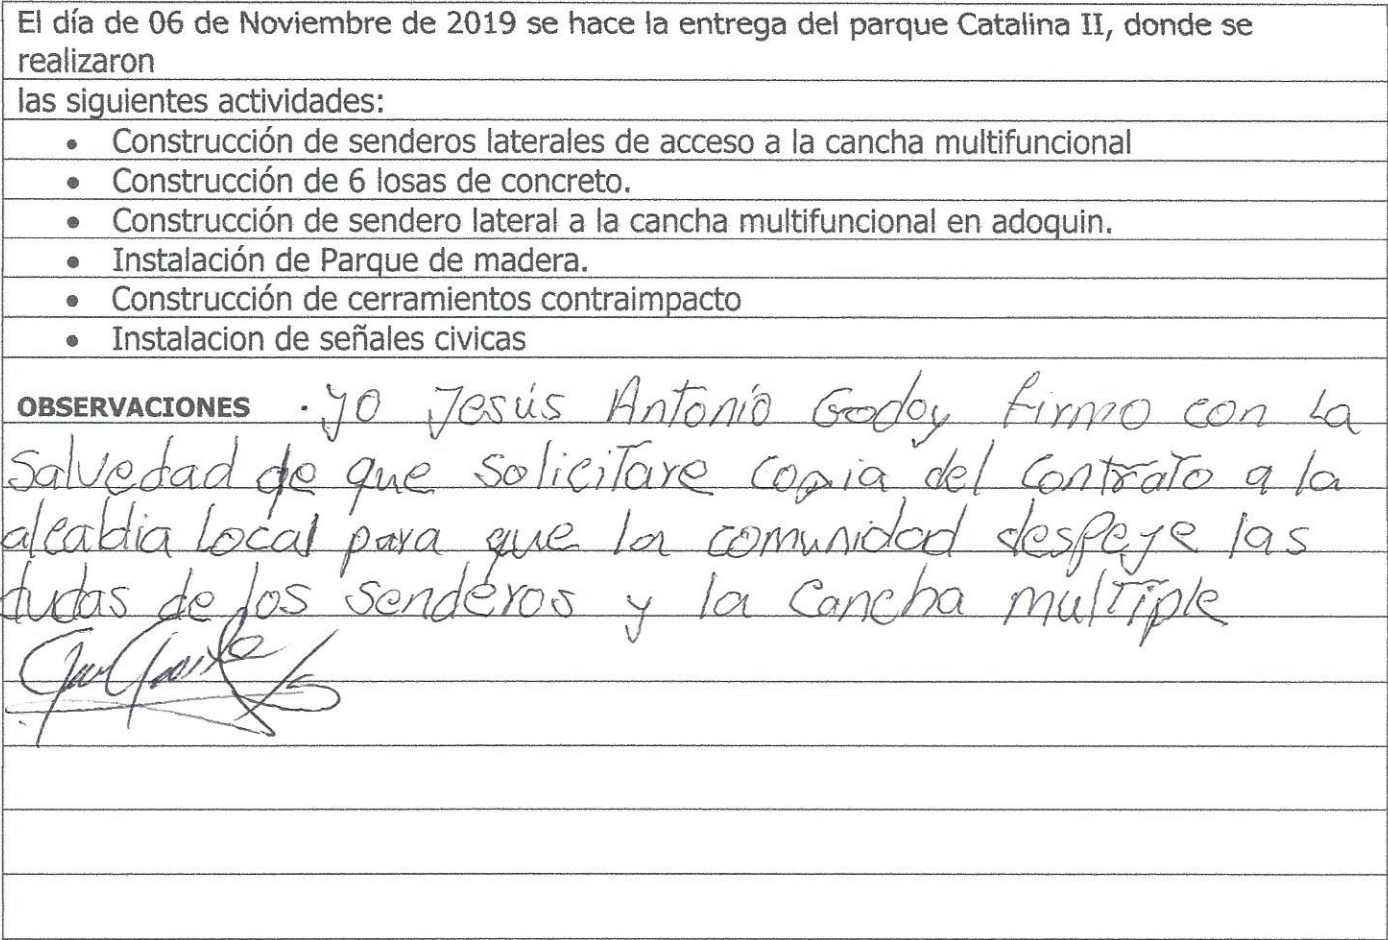 El día de 06 de Noviembre de 2019 se hace la entrega del parque Catalina II, donde se
realizaron
las siguientes actividades:
• Construcción de senderos laterales de acceso a la cancha multifuncional
• Construcción de 6 losas de concreto.
• Construcción de sendero lateral a la cancha multifuncional en adoquin.
• Instalación de Parque de madera.
• Construcción de cerramientos contraimpacto
• Instalacion de señales civicas
OBSERVACIONES . yo Jesús Antonio Godoy firmo con la
Salvedad de que solicitare copia del contrato a la
alcaldia Local para que la comunidad despeje las
dudas de los senderos y la cancha multiple